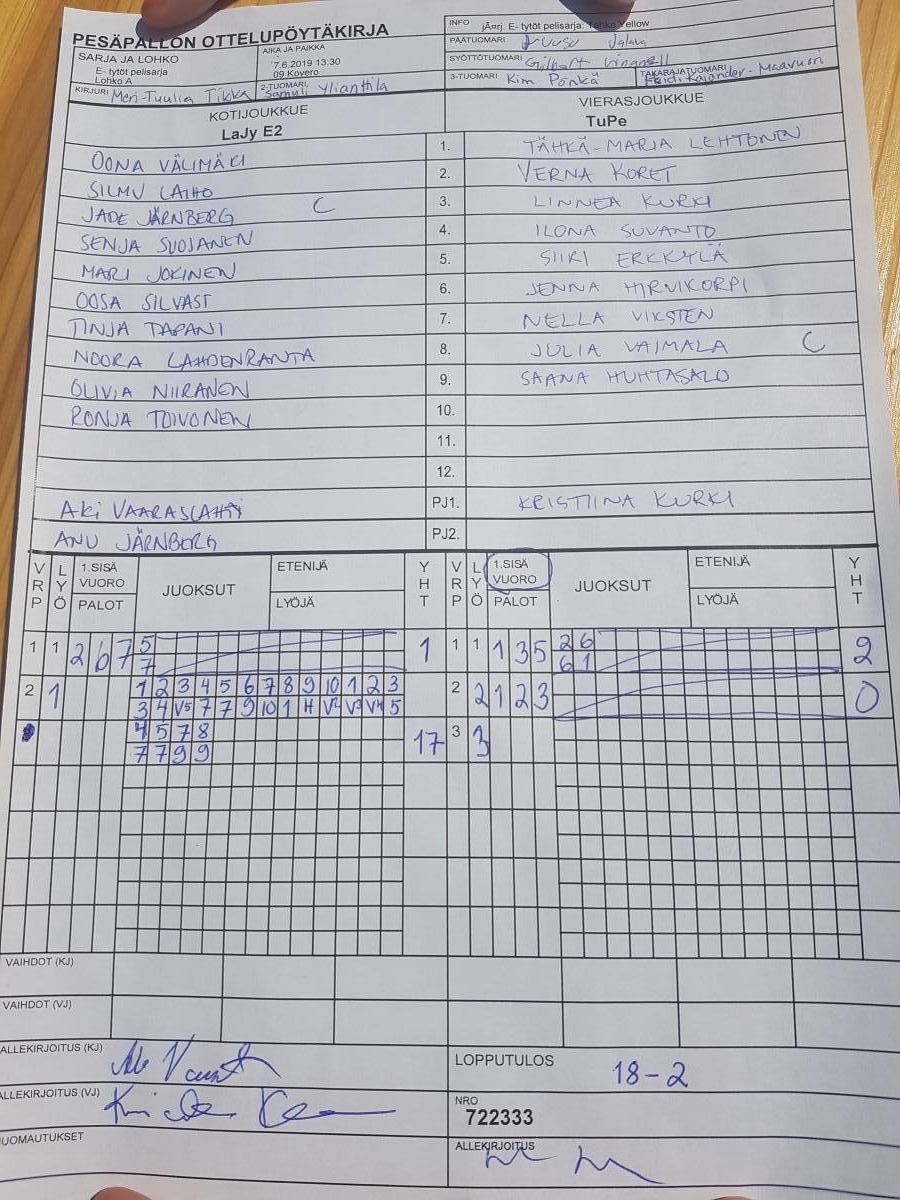 PESÄPALLON OTTELUPÖYTÄKIRJA
INFO jÄÄrj. E- tytöt pelisarja: Yellow
PÄÄTUOMARI Juusu Jalava
SARJA JA LOHKO
E- tytöt pelisarja
Lohko A
AIKA JA PAIKKA
7.6.2019 13:30
09 Kovero
SYÖTTÖTUOMARI Gilbert
KIRJURI Meri-Tuulia Tikka
2-TUOMARI Samuli Ylianttila
3-TUOMARI Kim Pönkä
TAKARAJATUOMARI Heidi Kajander-Maavuori
KOTIJOUKKUE
LaJy E2
VIERASJOUKKUE
TuPe
OONA VÄLIMÄKI 1. TÄHKÄ-MARIA LEHTONEN
SILMU LAIHO 2. VERNA KORET
JADE JÄRNBERG C 3. LINNEA KURKI
SENJA SUOJANEN 4. ILONA SUVANTO
MARI JOKINEN 5. SIIRI ERKKYLÄ
OOSA SILVAST 6. JENNA HIRVIKORPI
TINJA TAPANI 7. NELLA VIKSTEN
NOORA LAHDENRANTA 8. JULIA VAIMALA C
OLIVIA NIIRANEN 9. SAANA HUHTASALO
RONJA TOIVONEN 10.
11.
12.
AKi VAARASLAHTI PJ1. KRISTIINA KURKI
ANU JÄRNBERG PJ2.
VRP LYÖ 1.SISÄ VUORO PALOT JUOKSUT ETENIJÄ LYÖJÄ YHT VRP LYÖ 1.SISÄ VUORO PALOT JUOKSUT ETENIJÄ LYÖJÄ YHT
1 1 2 6 7 5 1 1 1 1 3 5 2 6 2
7 6 1
2 1 1 2 3 4 5 6 7 8 9 10 1 2 3 2 2 1 2 3 0
3 4 V5 7 7 9 10 1 H V2 V3 V4 5
4 5 7 8 17 3 3
7 7 9 9
VAIHDOT (KJ)
VAIHDOT (VJ)
ALLEKIRJOITUS (KJ)
LOPPUTULOS 18-2
ALLEKIRJOITUS (VJ)
NRO
722333
HUOMAUTUKSET
ALLEKIRJOITUS